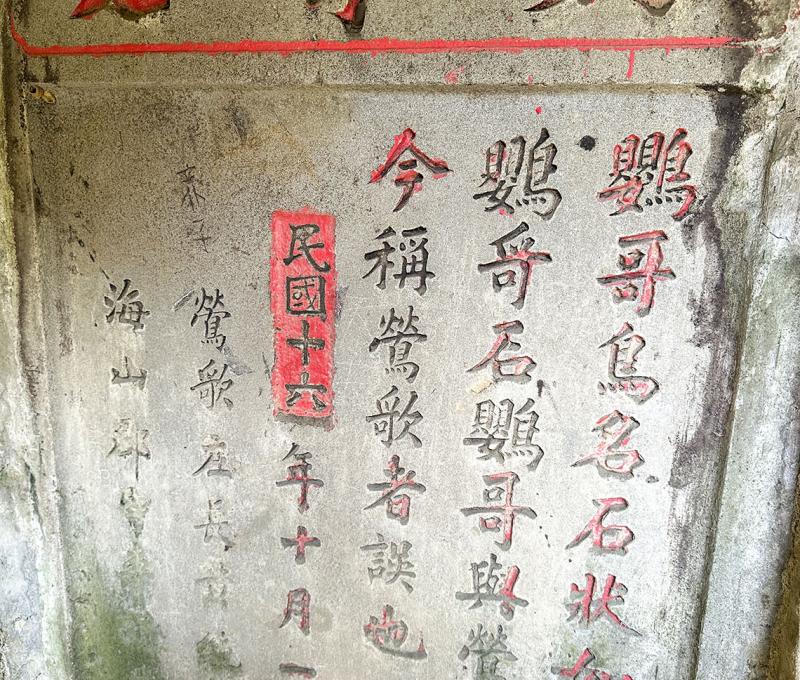 鸚哥鳥名石狀如
鸚哥石鸚哥與鶯
今稱鶯歌者誤也
民國十六年十月一
鶯歌庄長黃純
海山郡